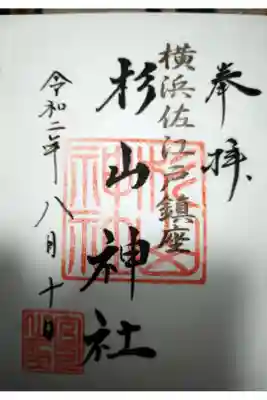 奉拝
横浜佐江戸鎮座
杉山神社
令和二年八月十日